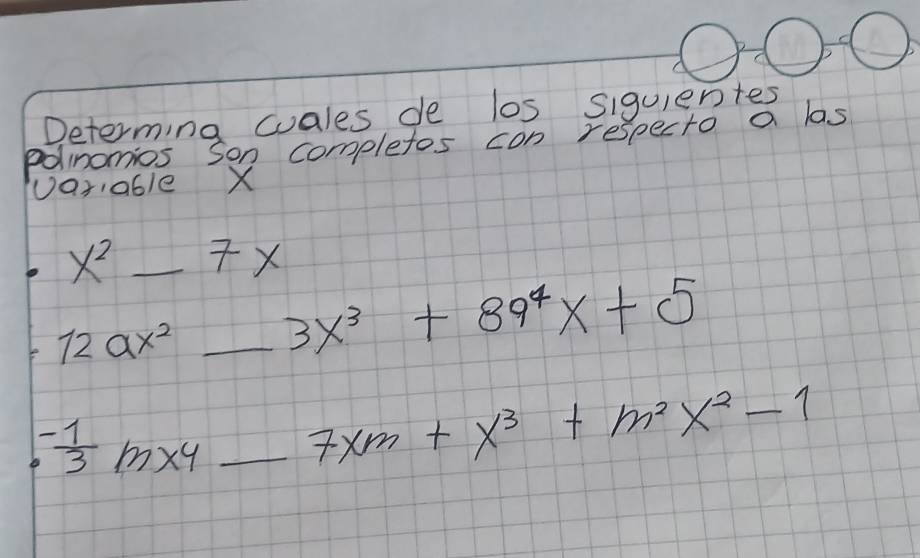 Determina cuales de los siguientes
polinomios son completos con respecto a las
variable X
• x² — 7x
• 12ax² — 3x³ + 89⁴x + 5
• -1/3 mx4 — 7xm + x³ + m²x² - 1